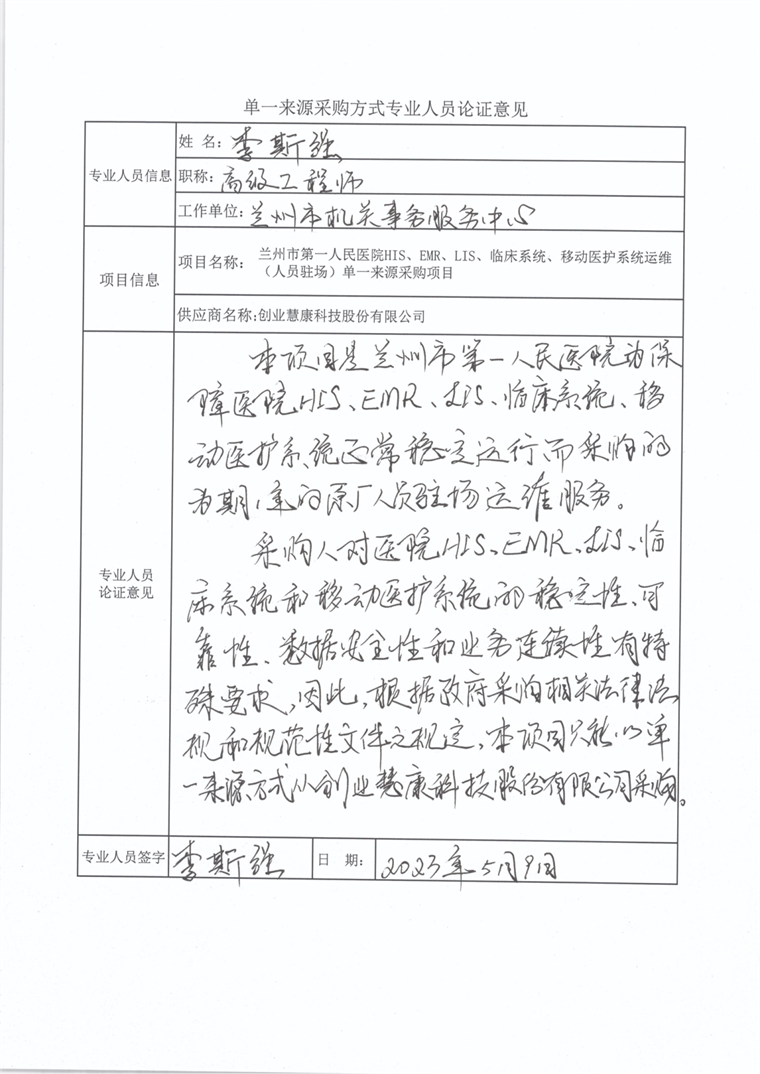 单一来源采购方式专业人员论证意见
专业人员信息
姓 名：李斯强
职称：高级工程师
工作单位：兰州市机关事务服务中心
项目信息
项目名称：兰州市第一人民医院HIS、EMR、LIS、临床系统、移动医护系统运维
（人员驻场）单一来源采购项目
供应商名称:创业慧康科技股份有限公司
专业人员
论证意见
本项目是兰州市第一人民医院为保
障医院HIS、EMR、LIS、临床系统、移
动医护系统正常稳定运行而采购的
为期1年的原厂人员驻场运维服务。
采购人对医院HIS、EMR、LIS、临
床系统和移动医护系统的稳定性、可
靠性、数据安全性和业务连续性有特
殊要求，因此，根据政府采购相关法律法
规和规范性文件之规定，本项目只能以单
一来源方式从创业慧康科技股份有限公司采购。
专业人员签字 李斯强 日 期： 2023年5月9日